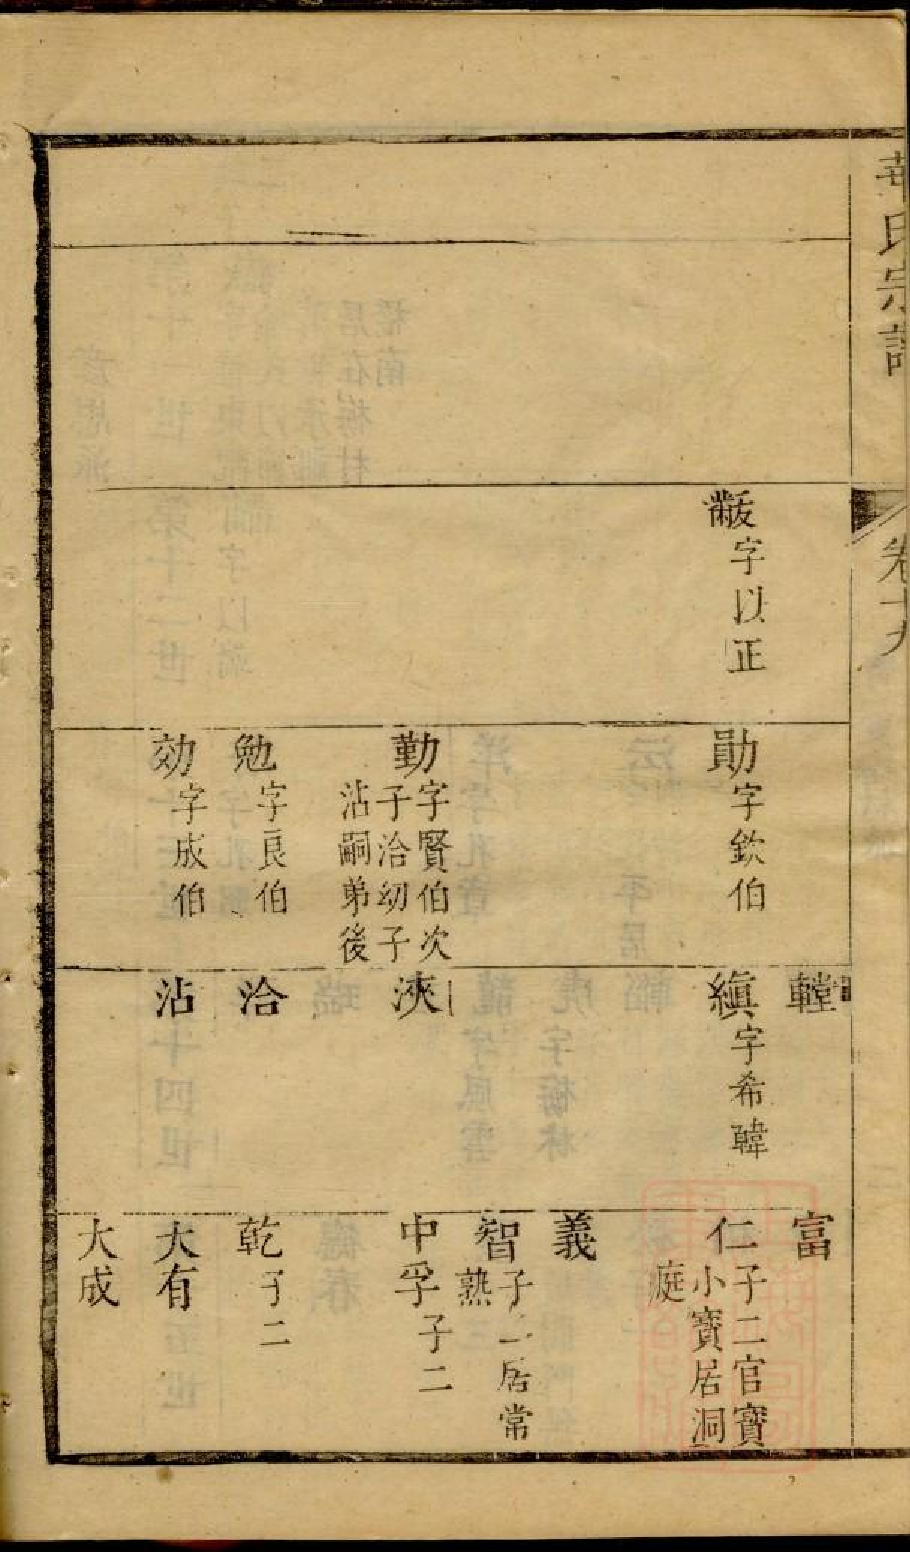 氏宗譜
卷十九
黻字以正
勛字欽伯
勤字賢伯次
子洽幼子
沾嗣弟後
勉字良伯
効字成伯
縝字希韓
浹
洽
沾
富
仁子二官寶
小寶居洞
庭
義
智子二居常
熟
中孚子二
乾子二
大有
大成